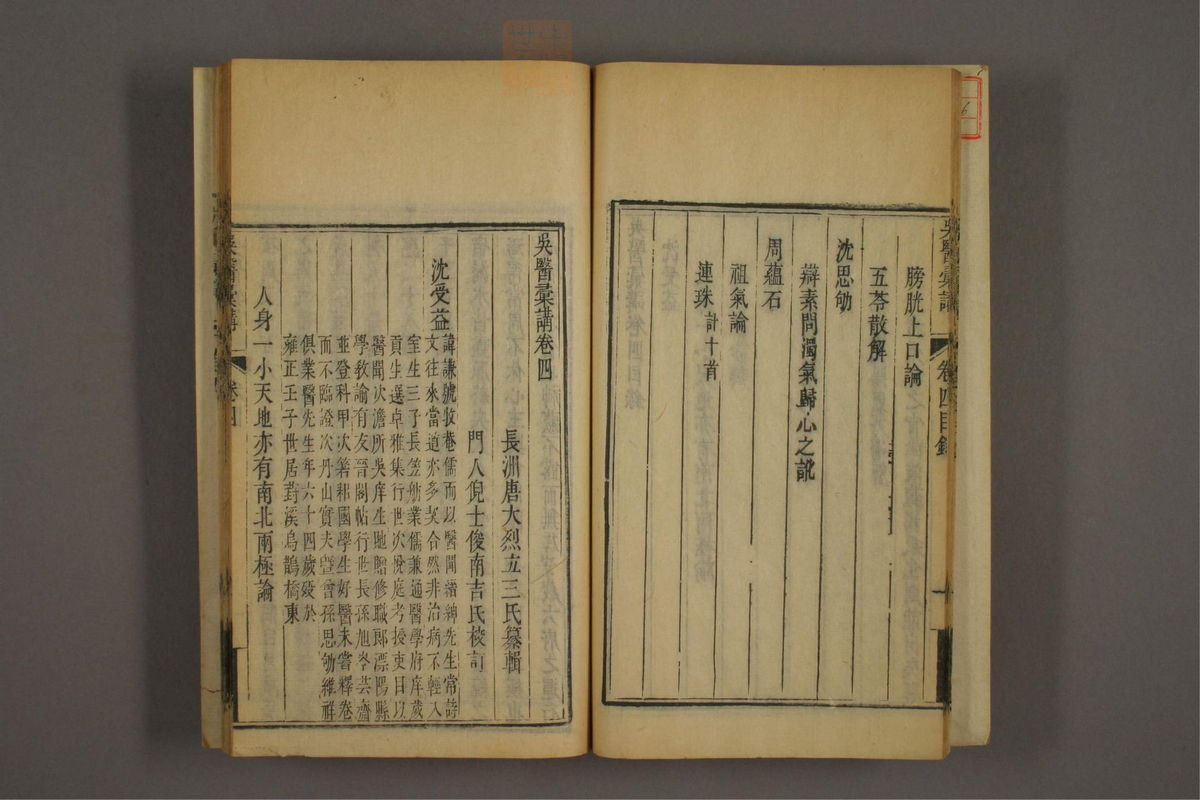 吳醫彙講
卷四目錄
膀胱上口論
五苓散解
沈思劬
辯素問濁氣歸心之訛
周蘊石
祖氣論
連珠計十首
吳醫彙講卷四
長洲唐大烈立三氏纂輯
門人倪士俊南吉氏校訂
沈受益
諱謙號牧菴儒而以醫聞縉紳先生常詩
文往來當道亦多契合然非治病不輕入
室生三子長笠舫業儒兼通醫學府庠歲
貢生選卓雅集行世次悅庭考授吏目以
醫聞次澹所吳庠生貤贈修職郎溧陽縣
學教諭有友晉閣帖行世長孫旭岑芸齋
並登科甲次箬耜國學生好醫未嘗釋卷
而不臨證次丹山實夫暨曾孫思劬維祥
俱業醫先生年六十四歲歿於
雍正壬子世居葑溪烏鵲橋東
人身一小天地亦有南北兩極論
吳醫彙講
卷四